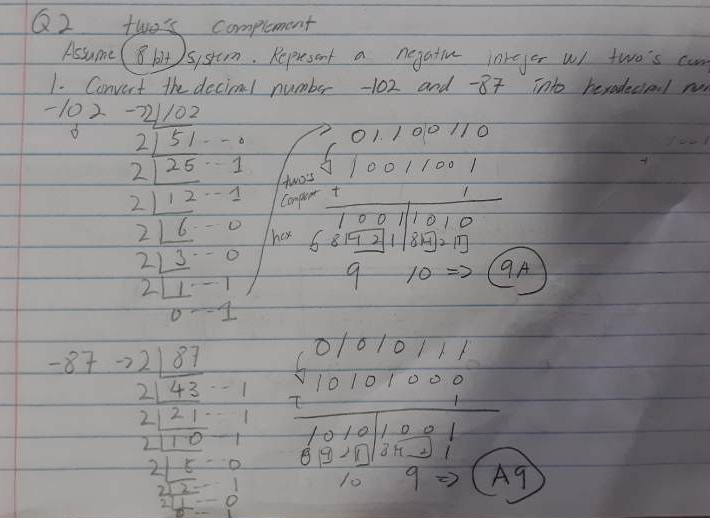 Q2 two's complement
Assume 8 bit system. Represent a negative integer w/ two's com
1. Convert the decimal number -102 and -87 into hexadecimal num
-102 → 2 102
2 51 -- 0
2 25 -- 1
2 12 -- 1
2 6 -- 0
2 3 -- 0
2 1 -- 1
0 -- 1
01100110
10011001
two's
+ 1
1001 1010
hex 8421 8421
9 10 => 9A
-87 → 2 87
2 43 -- 1
2 21 -- 1
2 10 -- 1
2 5 -- 0
2 2 -- 1
2 1 -- 0
0 -- 1
01010111
10101000
+ 1
1010 1001
8421 8421
10 9 => A9